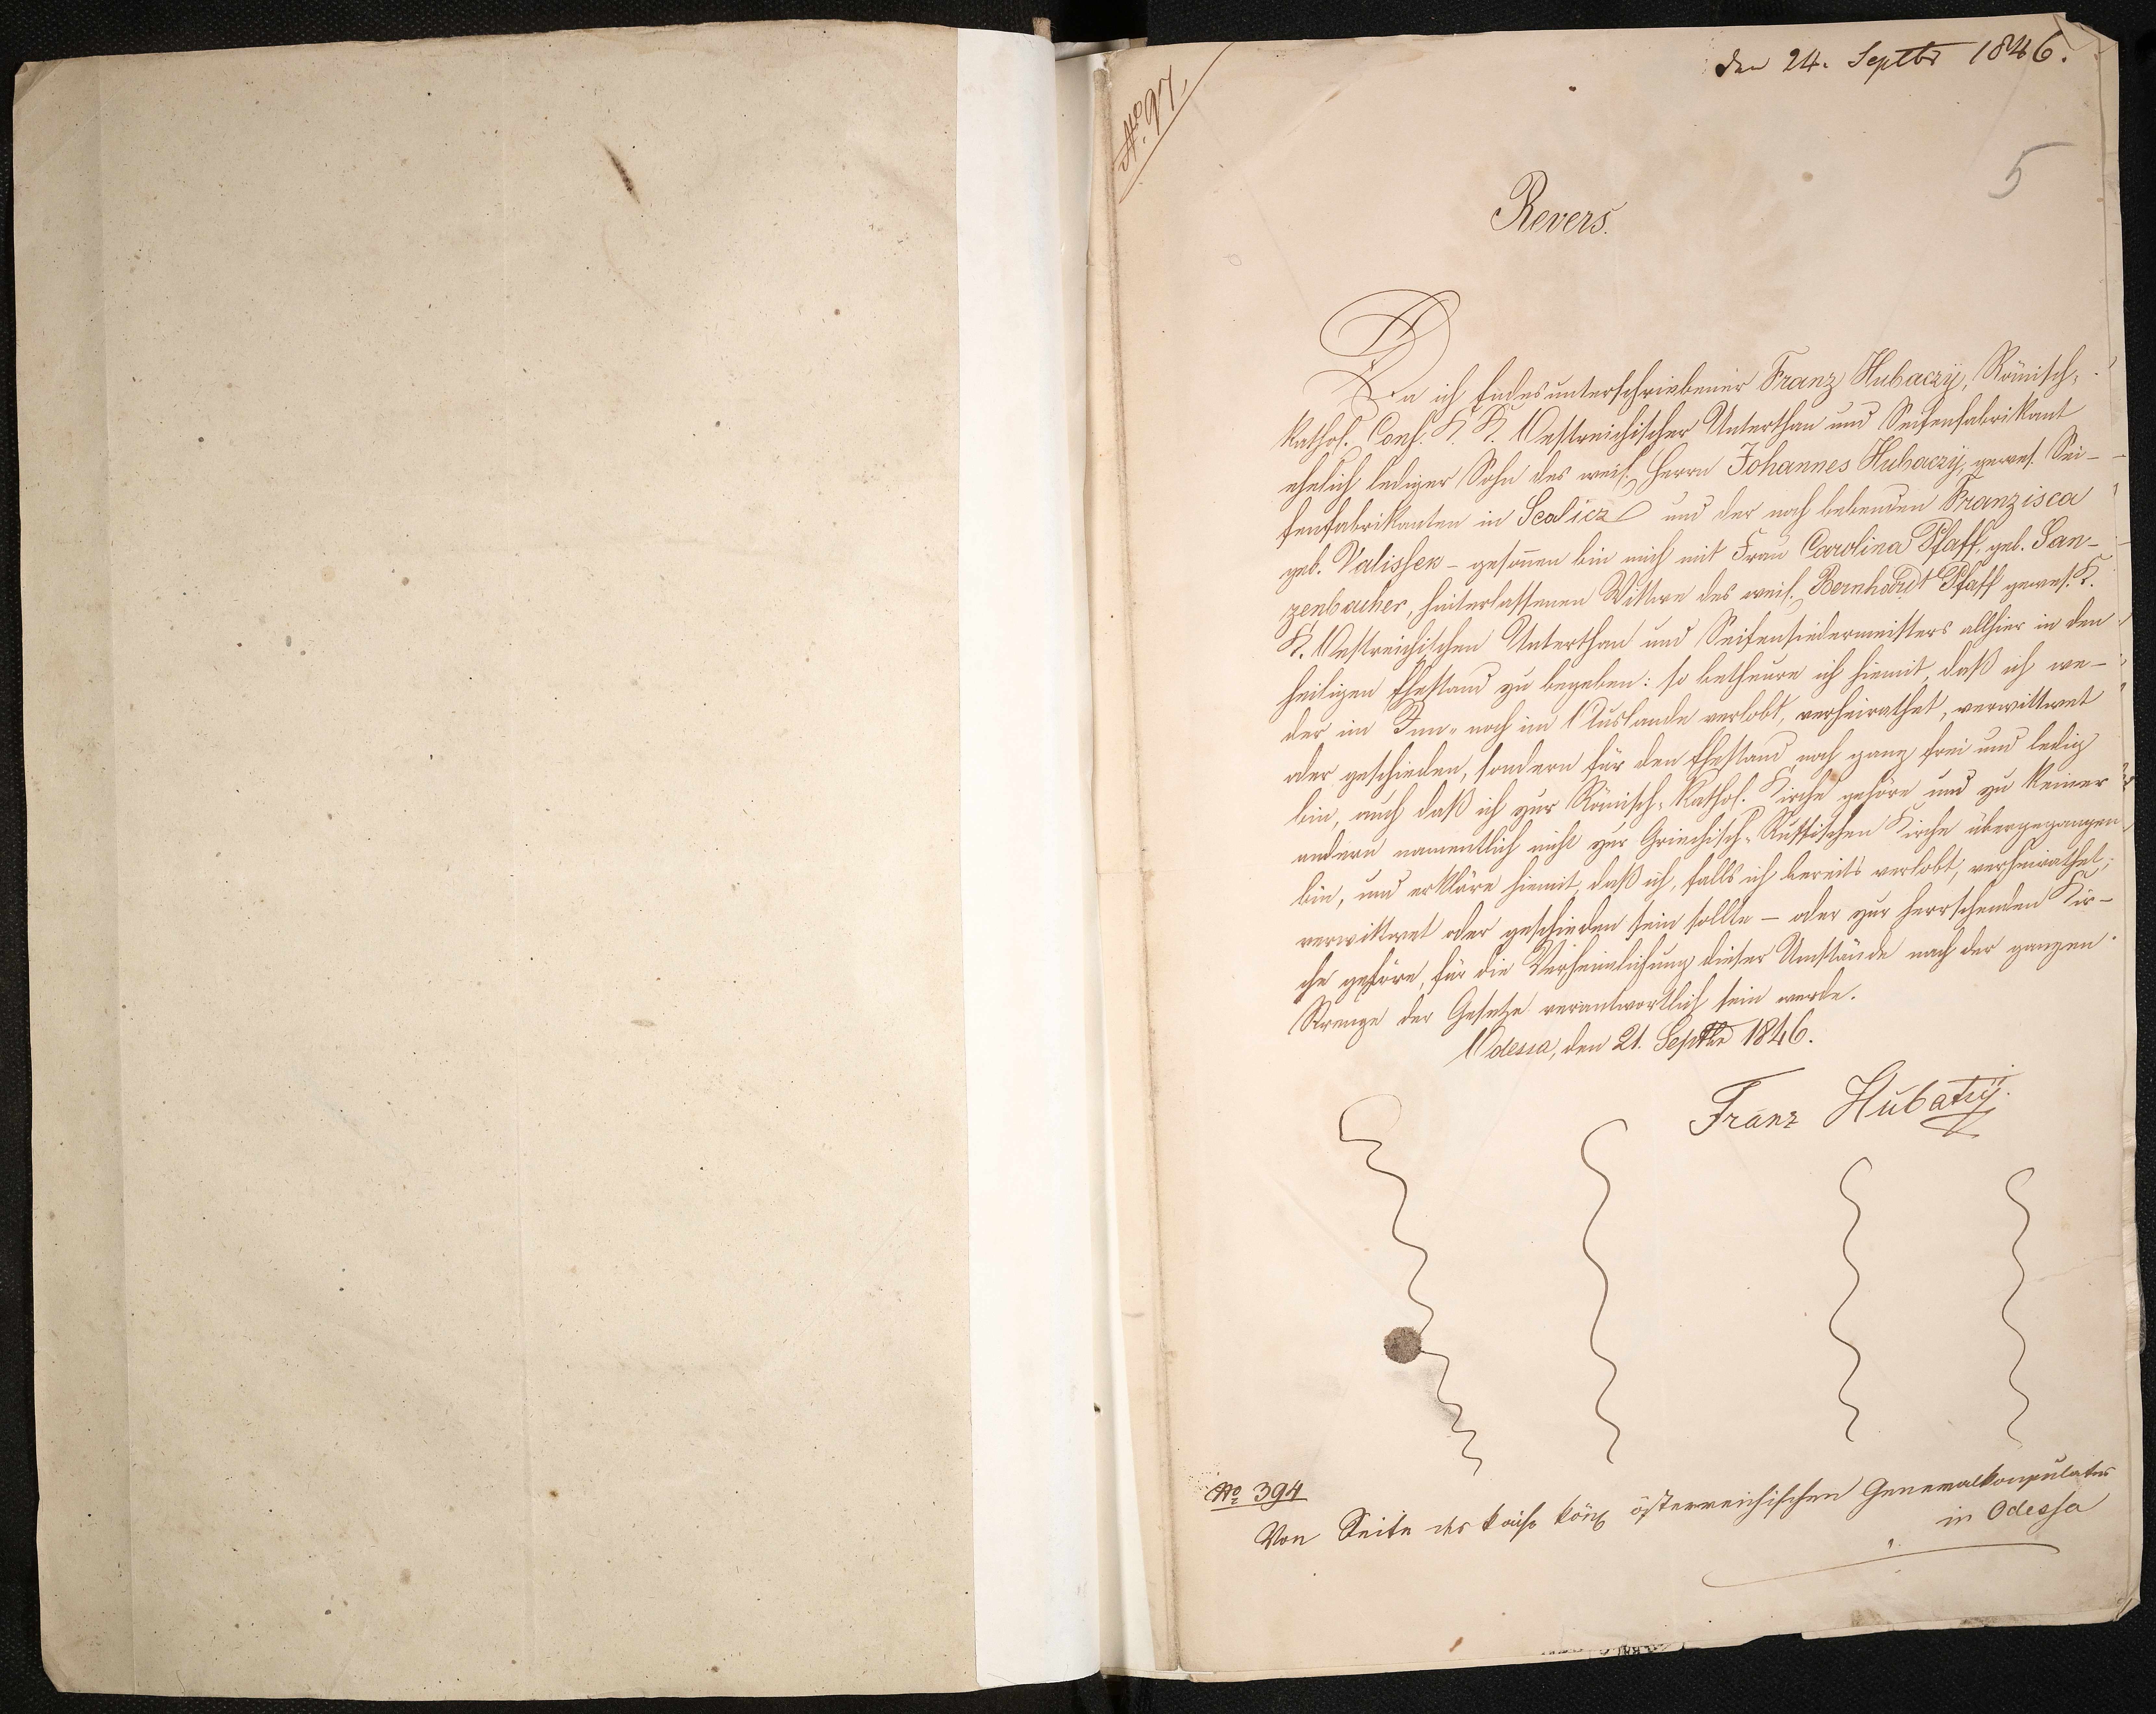 No. 97.
den 24. Septbr 1846.
5
Revers.
Da ich Endesunterschriebener Franz Hubaczÿ, Römisch-
kathol. Conf. K. K. Oestreichischer Unterthan und Seifenfabrikant
ehelich lediger Sohn des weil. Herrn Johannes Hubaczÿ, gewes. Sei-
fenfabrikanten in Scalicz und der noch lebenden Franzisca
geb. Valissek – gesonnen bin mich mit Frau Carolina Pfaff, geb. San-
zenbacher, hinterlassenen Wittwe des weil. Bernhardt Pfaff gewes. K.
K. Oestreichischen Unterthan und Seifensiedermeisters allhier in den
heiligen Ehestand zu begeben: so betheure ich hiemit, daß ich we-
der im Inn- noch im Auslande verlobt, verheirathet, verwittwet
oder geschieden, sondern für den Ehestand noch ganz frei und ledig
bin, auch daß ich zur Römisch-kathol. Kirche gehöre und zu keiner
andern namentlich nicht zur Griechisch-Russischen Kirche übergegangen
bin, und erkläre hiemit, daß ich, falls ich bereits verlobt, verheirathet,
verwittwet oder geschieden sein sollte – oder zur herrschenden Kir-
che gehöre, für die Verheimlichung dieser Umstände nach der ganzen
Strenge der Gesetze verantwortlich sein werde.
Odessa, den 21. Septbr 1846.
Franz Hubatÿ
No 394
Von Seite des kaise könig österreichischen Generalkonsulates
in Odessa